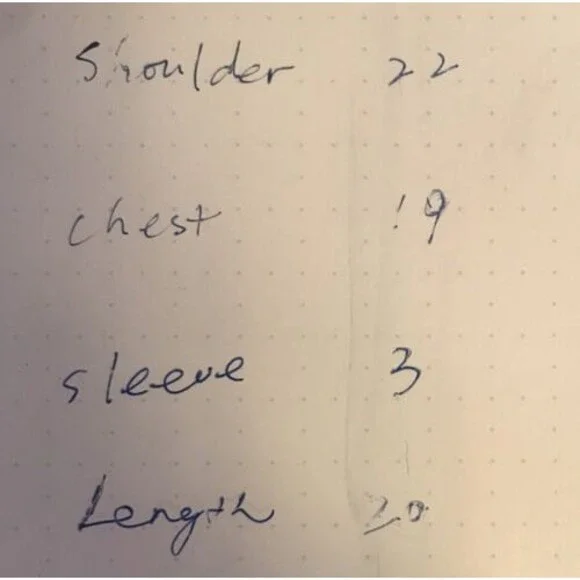 Shoulder 22
chest 19
sleeve 3
Length 20